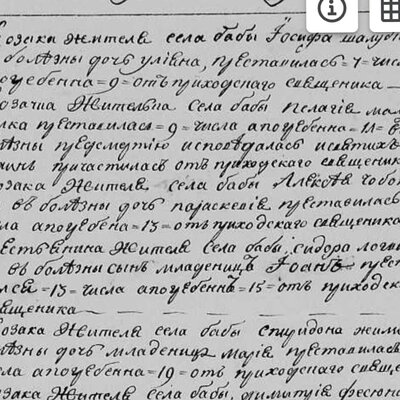 козака жителя села бабы Іосифа
болѣзны дочь уліяна, преставилась =7= числа
погребенна =9= отъ приходскаго священика
козачка Жителька села бабы Пелагія
преставилась =9= числа а погребенна =11=
болѣзны предсмертію исповѣдалась и святихъ
таинъ причастилась отъ приходскаго священика
козака Жителя села бабы Алексѣя
въ болѣзны дочь параскевія преставилась
числа а погребена =13= отъ приходскаго священика
Жителя села бабы сидора
въ болѣзны сынъ младенецъ Іоанъ
=13= числа а погребенна =15= отъ приходскаго
священика
козака Жителя села бабы спиридона
болѣзны дочь младеница марія преставилась
числа а погребенна =19= отъ приходскаго
козака Жителя села бабы, димитрія